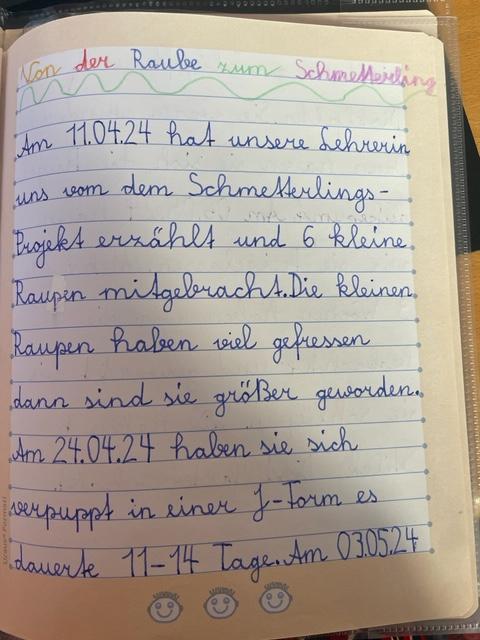 Von der Raube zum Schmetterling
Am 11.04.24 hat unsere Lehrerin
uns vom dem Schmetterlings-
Projekt erzählt und 6 kleine
Raupen mitgebracht. Die kleinen
Raupen haben viel gefressen
dann sind sie größer geworden.
Am 24.04.24 haben sie sich
verpuppt in einer J-Form es
dauerte 11-14 Tage. Am 03.05.24